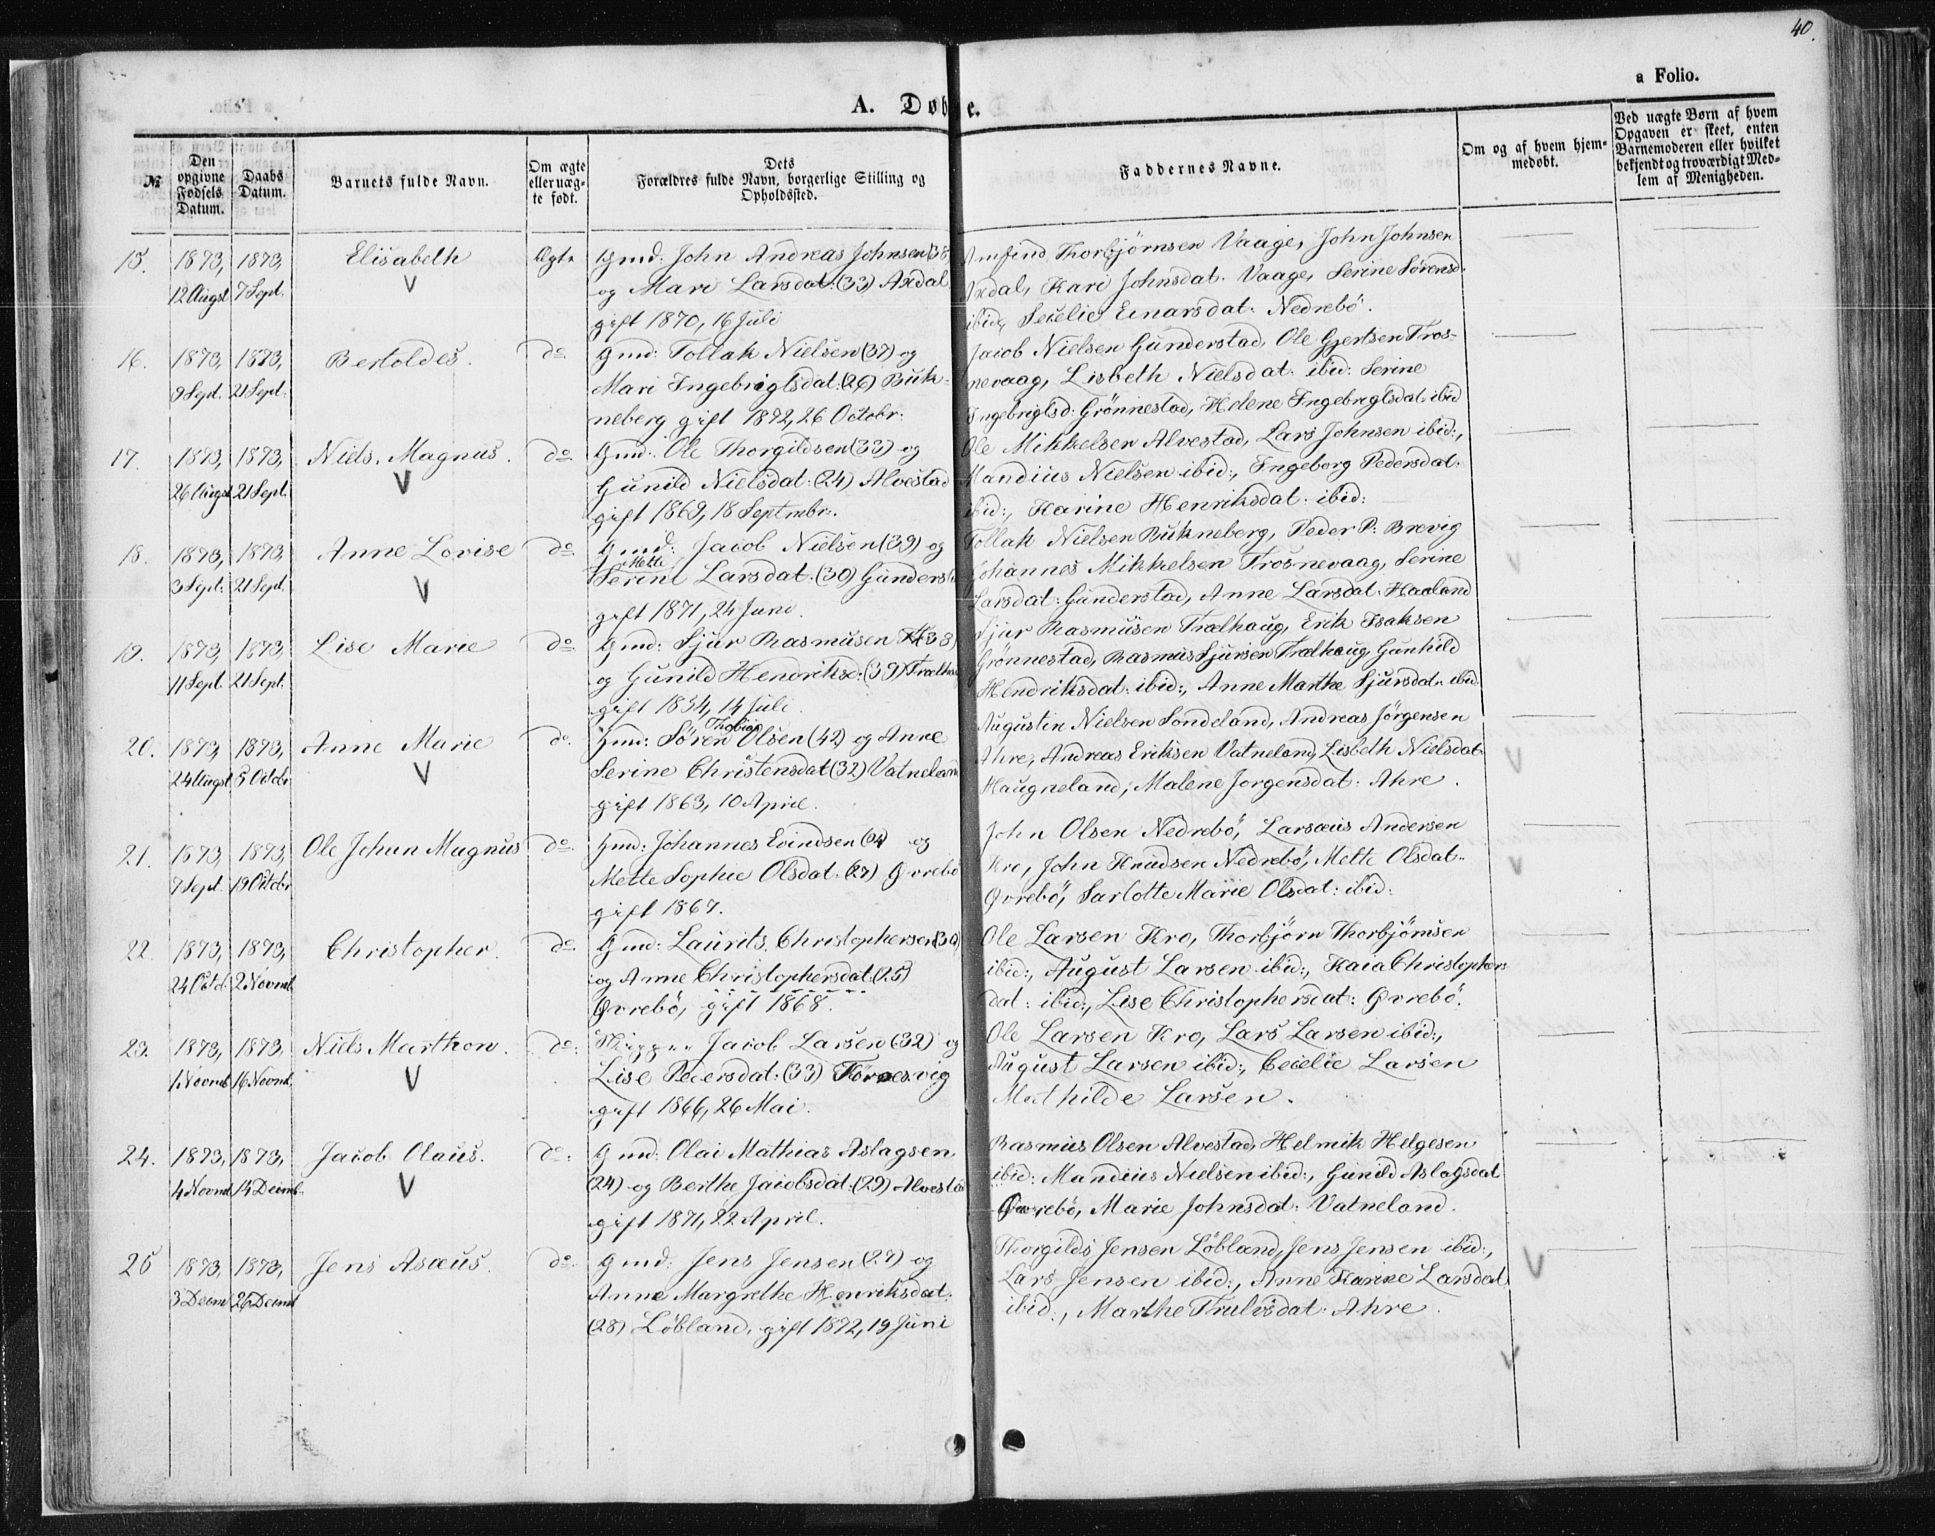 40.
a Folio.
A. Døbte.
№
Den opgivne Fødsels Datum.
Daabs Datum.
Barnets fulde Navn.
Om ægte eller uægte født.
Dets Forældres fulde Navn, borgerlige Stilling og Opholdssted.
Faddernes Navne.
Om og af hvem hjemmedøbt.
Ved uægte Børn af hvem Opgaven er skeet, enten Barnemoderen eller hvilket bekjendt og troværdigt Medlem af Menigheden.
15. 1873, 12 Augst 1873, 7 Sept. Elisabeth Ægte
Gmd: John Andreas Johnsen (38
og Mari Larsdat: (33) Axdal
gift 1870, 16 Juli
Amfind Thorbjørnsen Vaage, John Johnsen
Axdal, Kari Johnsdat. Vaage, Serine Sørensd.
ibid, Secelie Einarsdat. Nedrebö.
16. 1873, 9 Sept. 1873, 21 Sept. Bertoldes. do
Gmd: Tollak Nielsen (37) og
Mari Ingebrigtsdat: (26) Buk-
neberg gift 1872, 26 Octobr.
Jacob Nielsen Gunderstad, Ole Gjertsen Tros-
nevaag, Lisbeth Nielsdat. ibid: Serine
Ingebrigtsd: Grönnestad, Helene Ingebrigtsdat. ibid
17. 1873, 26 Augst 1873, 21 Sept. Niels Magnus. do
Gmd: Ole Thorgildsen (33) og
Gunild Nielsdat. (24) Alvestad
gift 1869, 18 Septmbr.
Ole Mikkelsen Alvestad, Lars Johnsen ibid:,
Mandius Nielsen ibid:, Ingeborg Pedersdat.
ibid:, Karine Henriksdat. ibid:
18. 1873, 3 Sept. 1873, 21 Sept. Anne Lovise do
Gmd: Jacob Nielsen (39) og
Mette
Serine Larsdat. (30) Gunderst
gift 1871, 24 Juni.
Tollak Nielsen Bukneberg, Peder P: Brevig
Johannes Mikkelsen Trosnevaag, Serine
Larsdat. Gunderstad, Anne Larsdat. Haaland
19. 1873, 11 Sept. 1873, 21 Sept. Lise Marie do
Gmd: Sjur Rasmusen (38)
og Gunild Hendriksd: (39) Trælhau
gift 1854, 14 Juli.
Sjur Rasmusen Trælhaug, Erik Isaksen
Grönnestad, Rasmus Sjursen Trælhaug Gunhild
Hendriksdat. ibid:, Anne Marthe Sjursdat. ibid
20. 1873, 24 Augst 1873, 5 Octobr Anne Marie do
Thobias
Gmd: Søren Olsen (42) og Anne
Serine Christensdat (32) Vatneland
gift 1863, 10 April.
Augustin Nielsen Sondeland, Andreas Jörgensen
Ahre, Andreas Eriksen Vatneland, Lisbeth Nielsdat.
Haugneland, Malene Jorgensdat. Ahre.
21. 1873, 7 Sept. 1873, 19 Octobr Ole Johan Magnus do
Gmd: Johannes Evindsen og
Mette Sophie Olsdat. (27) Øvrebö
gift 1867.
John Olsen Nedrebö, Larsæus Andersen
Kro, John Knudsen Nedrebö, Mette Olsdat.
Øvrebö, Sarlotte Marie Olsdat: ibid:
22. 1873, 24 Octob. 1873, 2 Novmb. Christopher. do
Gmd: Laurits Christophersen (30)
og Anne Christophersdat. (25)
Øvrebö, gift 1868.
Ole Larsen Kro, Thorbjörn Thorbjörnsen
ibid:, August Larsen ibid:, Kaia Christophers
dat: ibid:, Lise Christophersdat: Øvrebö.
23. 1873, 1 Novmb. 1873, 16 Novmb. Niels Marthon. do:
Skipper Jacob Larsen (32) og
Lise Pedersdat. (33) Förresvig
gift 1866, 26 Mai.
Ole Larsen Kro, Lars Larsen ibid:,
August Larsen ibid:, Cecelie Larsen
Mathilde Larsen.
24. 1873, 4 Novmb. 1873, 14 Decmb. Jacob Olaus. do:
Gmd: Olai Mathias Aslagsen
(24) og Berthe Jacobsdat. (29) Alvestad
gift 1871, 22 April.
Rasmus Olsen Alvestad, Helmik Helgesen
ibid: Mandius Nielsen ibid:, Gunild Aslagsdat
Øvrebö, Marie Johnsdat. Vatneland.
25 1873, 3 Decmb 1873, 26 Decmb Jens Asæus. do
Gmd: Jens Jensen (27) og
Anne Margrethe Henriksdat.
(28) Löbland, gift 1872, 19 Juni
Thorgilds Jensen Löbland, Jens Jensen ibid:,
Lars Jensen ibid:, Anne Karine Larsdat
ibid., Marthe Thulesdat. Ahre.